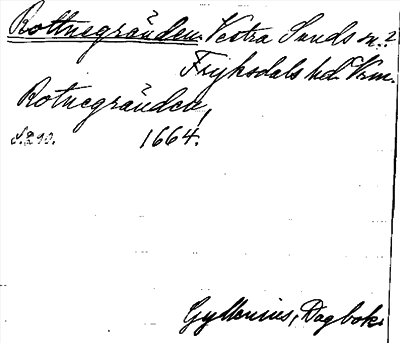 Rottnegränden. Vestra Sunds sn.?
Fryksdals hd. Vrm.
Rotnegränden,
S. 290. 1664.
Gyllenius, Dagbok.